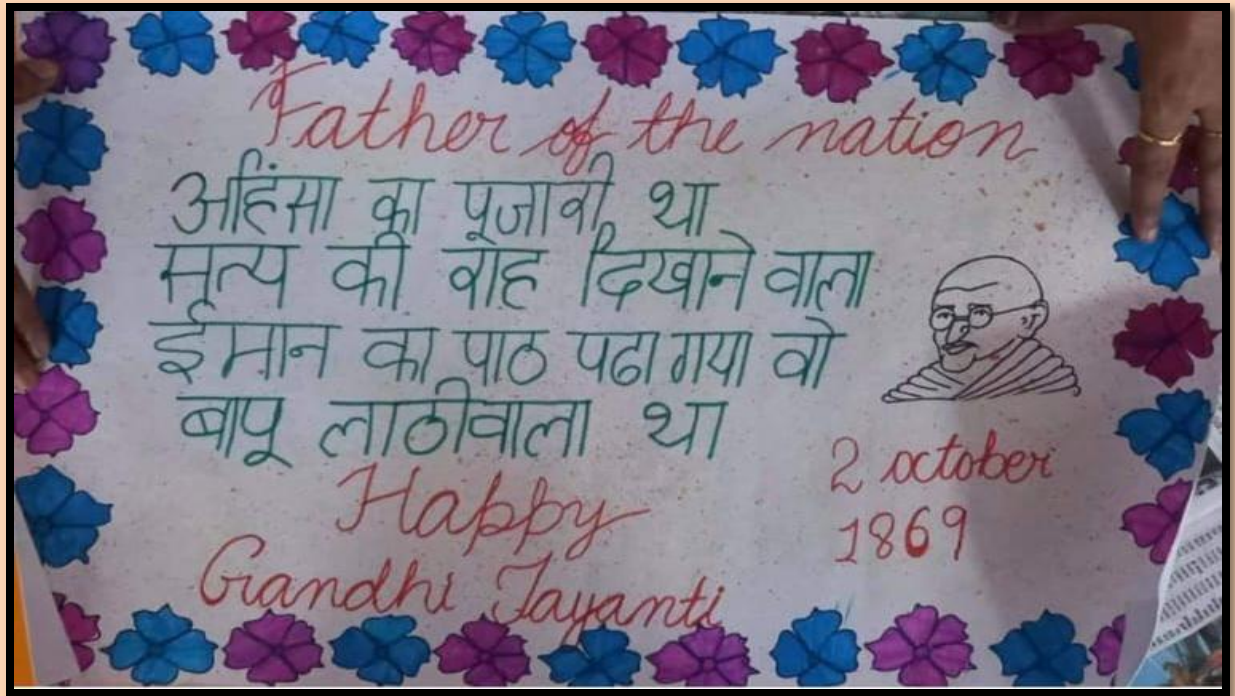 Father of the nation
अहिंसा का पूजारी था
सत्य की राह दिखाने वाला
ईमान का पाठ पढा गया वो
बापू लाठीवाला था
2 october
1869
Happy
Gandhi Jayanti